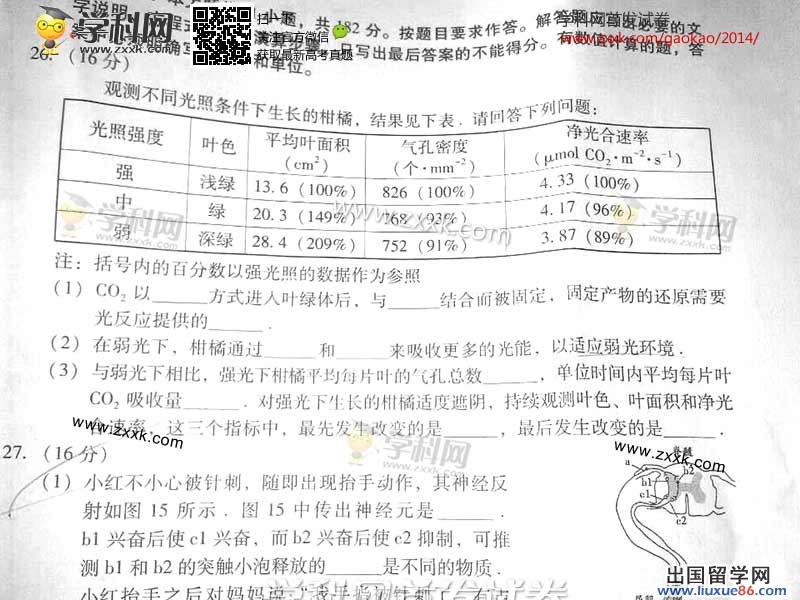 学说明
扫一扫
关注官方微信
获取最新高考真题
小题，共182分。按题目要求作答。解答题
学科网首发试卷
必要的文
演算步骤，只写出最后答案的不能得分。有数值计算的题，答
和单位。
www.zxxk.com/gaokao/2014/
学科网
www.zxxk.com
26. (16分)
观测不同光照条件下生长的柑橘，结果见下表．请回答下列问题：
光照强度 叶色 平均叶面积(cm²) 气孔密度(个·mm⁻²) 净光合速率(μmol CO₂·m⁻²·s⁻¹)
强 浅绿 13.6 (100%) 826 (100%) 4.33 (100%)
中 绿 20.3 (149%) 768 (93%) 4.17 (96%)
弱 深绿 28.4 (209%) 752 (91%) 3.87 (89%)
www.zxxk.com
学科网
www.zxxk.com
学科网
www.zxxk.com
注：括号内的百分数以强光照的数据作为参照
(1) CO₂以______方式进入叶绿体后，与______结合而被固定，固定产物的还原需要
光反应提供的______．
(2) 在弱光下，柑橘通过______和______来吸收更多的光能，以适应弱光环境．
(3) 与弱光下相比，强光下柑橘平均每片叶的气孔总数______，单位时间内平均每片叶
CO₂吸收量______．对强光下生长的柑橘适度遮阴，持续观测叶色、叶面积和净光
合速率，这三个指标中，最先发生改变的是______，最后发生改变的是______．
www.zxxk.com
学科网
www.zxxk.com
www.zxxk.com
27. (16分)
(1) 小红不小心被针刺，随即出现抬手动作，其神经反
射如图15所示．图15中传出神经元是______．
b1兴奋后使c1兴奋，而b2兴奋后使c2抑制，可推
测b1和b2的突触小泡释放的______是不同的物质．
小红抬手之后对妈妈说
学科网首发试卷
脊髓
a
b1
b2
c1
c2
出国留学网
www.liuxue86.com